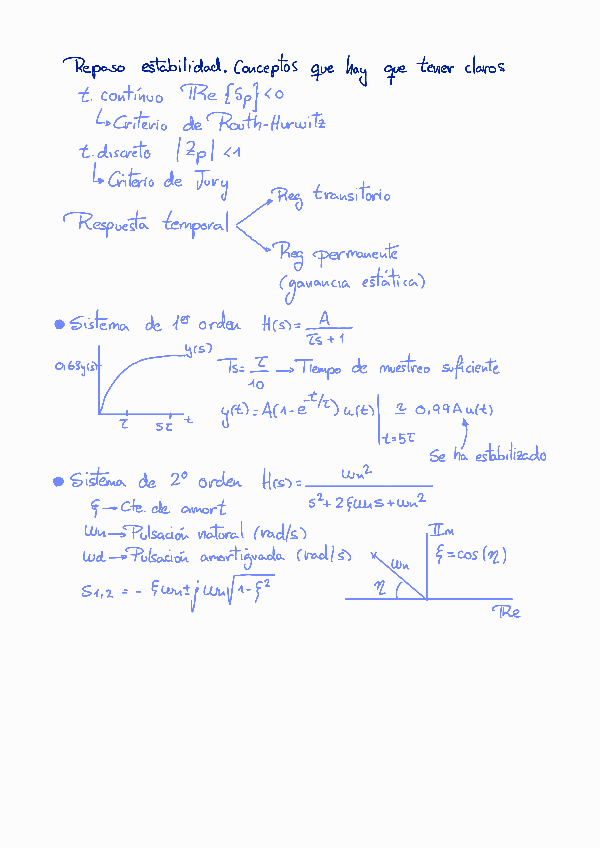 Repaso estabilidad. Conceptos que hay que tener claros
t. contínuo ℝe {Sp} < 0
↳ Criterio de Routh-Hurwitz
t. discreto |Zp| < 1
↳ Criterio de Jury
Reg transitorio
Respuesta temporal
Reg permanente
(ganancia estática)
• Sistema de 1er orden H(s) = A / (τs + 1)
y(s)
0,63y(s)
Ts = τ/10 → Tiempo de muestreo suficiente
y(t) = A(1 - e^-t/τ) u(t) | t=5τ ≃ 0,99A u(t)
τ 5τ t
Se ha estabilizado
• Sistema de 2º orden H(s) = ωn² / (s² + 2ξωns + ωn²)
ξ → Cte. de amort
ωn → Pulsación natural (rad/s)
ωd → Pulsación amortiguada (rad/s)
S1,2 = - ξωn ± jωn√(1-ξ²)
𝕀m
ωn ξ = cos(η)
η
ℝe